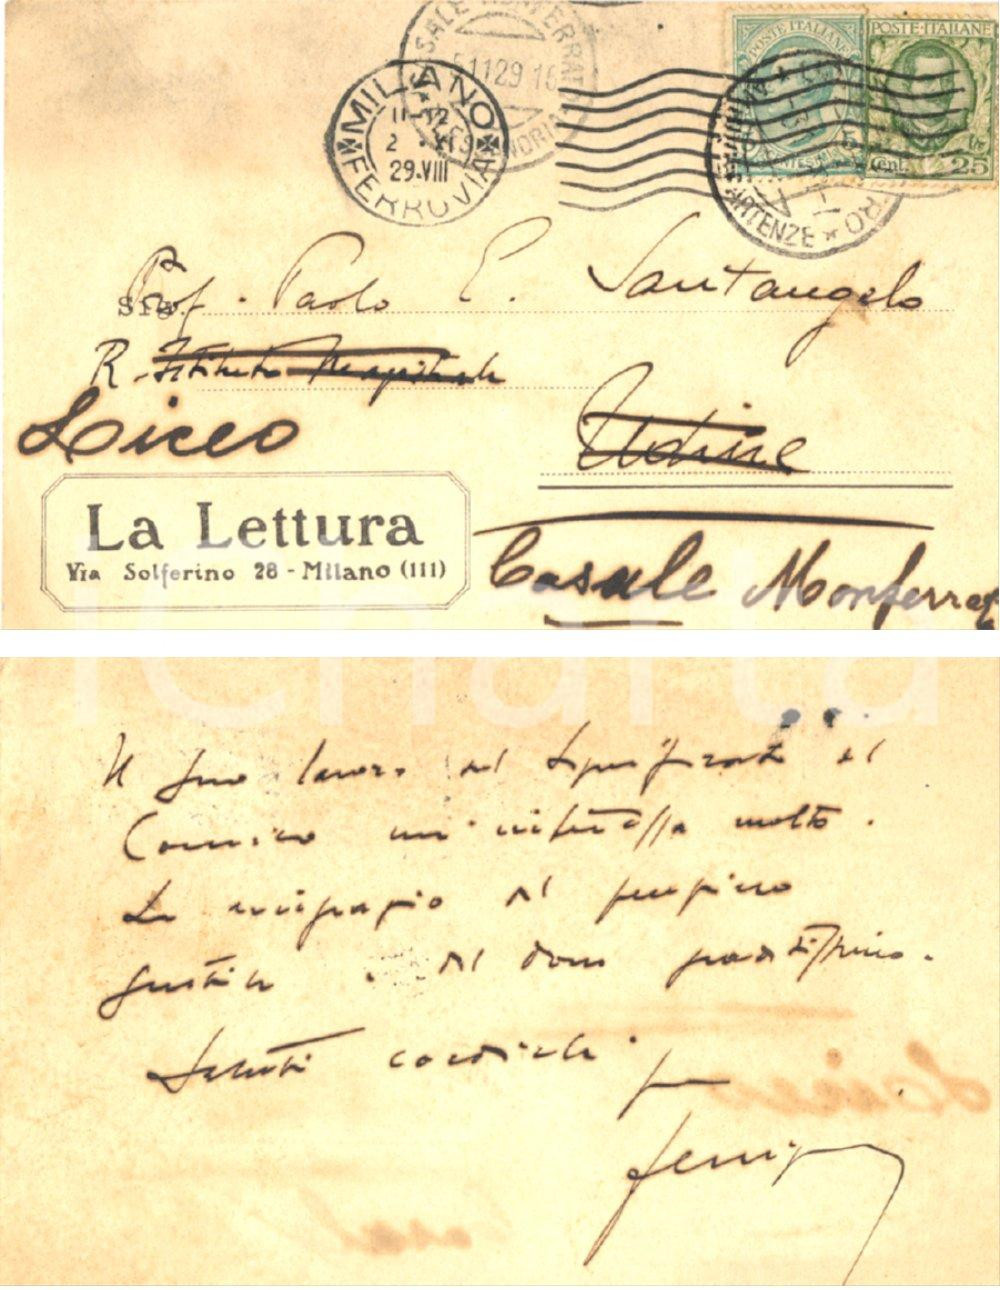 CASALE MONFERRATO
11 29 16
MILANO
11-12
2 . XI
29.VIII
FERROVIA
POSTE ITALIANE
POSTE·ITALIANE
Cent. 25
PARTENZE
Sig.
Prof. Paolo E. Santangelo
R. Istituto Magistrale
Liceo
Udine
La Lettura
Via Solferino 28 - Milano (111)
Casale Monferrato
Il suo lavoro sul significato del
Comico m'interessa molto.
La ringrazio del pensiero
gentile e del dono graditissimo.
Saluti cordiali.